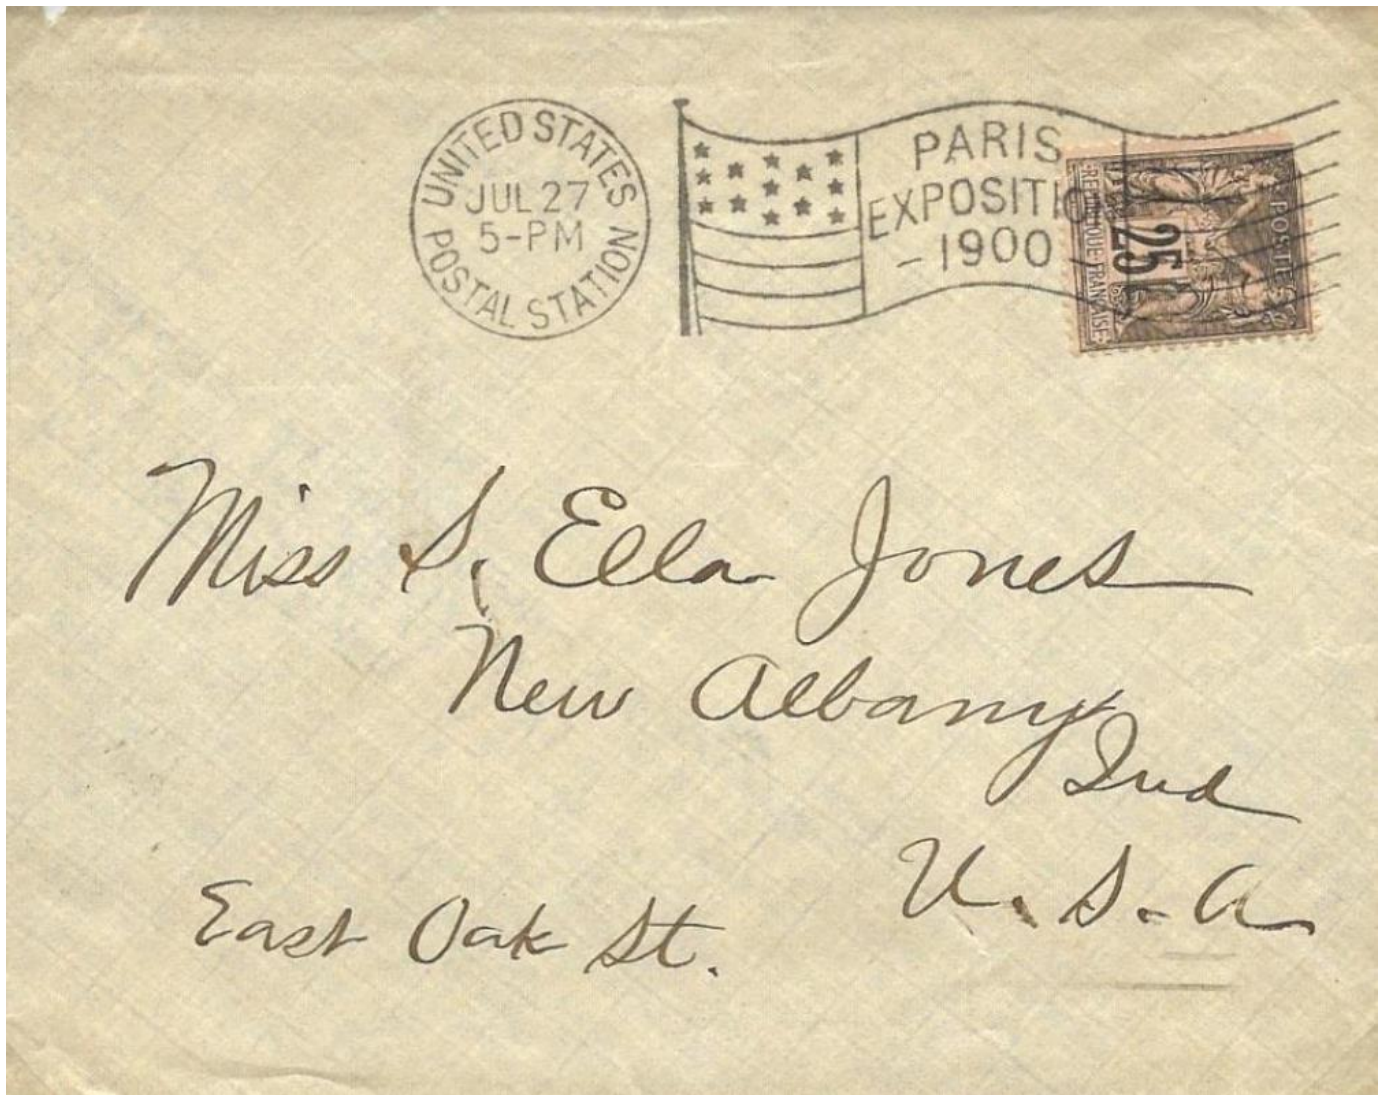 UNITED STATES
JUL 27
5-PM
POSTAL STATION
PARIS
EXPOSITIO
-1900
POSTES
25
REPUBLIQUE FRANÇAISE
Miss S. Ella Jones
New Albany
Ind
U.S.A
East Oak St.